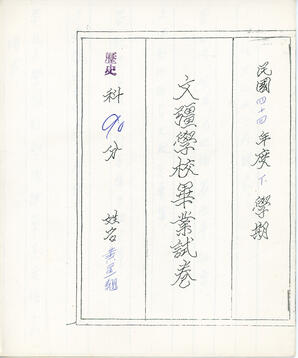 民國四十四年度下學期
文疆學校畢業試卷
歷史科90分 姓名黃